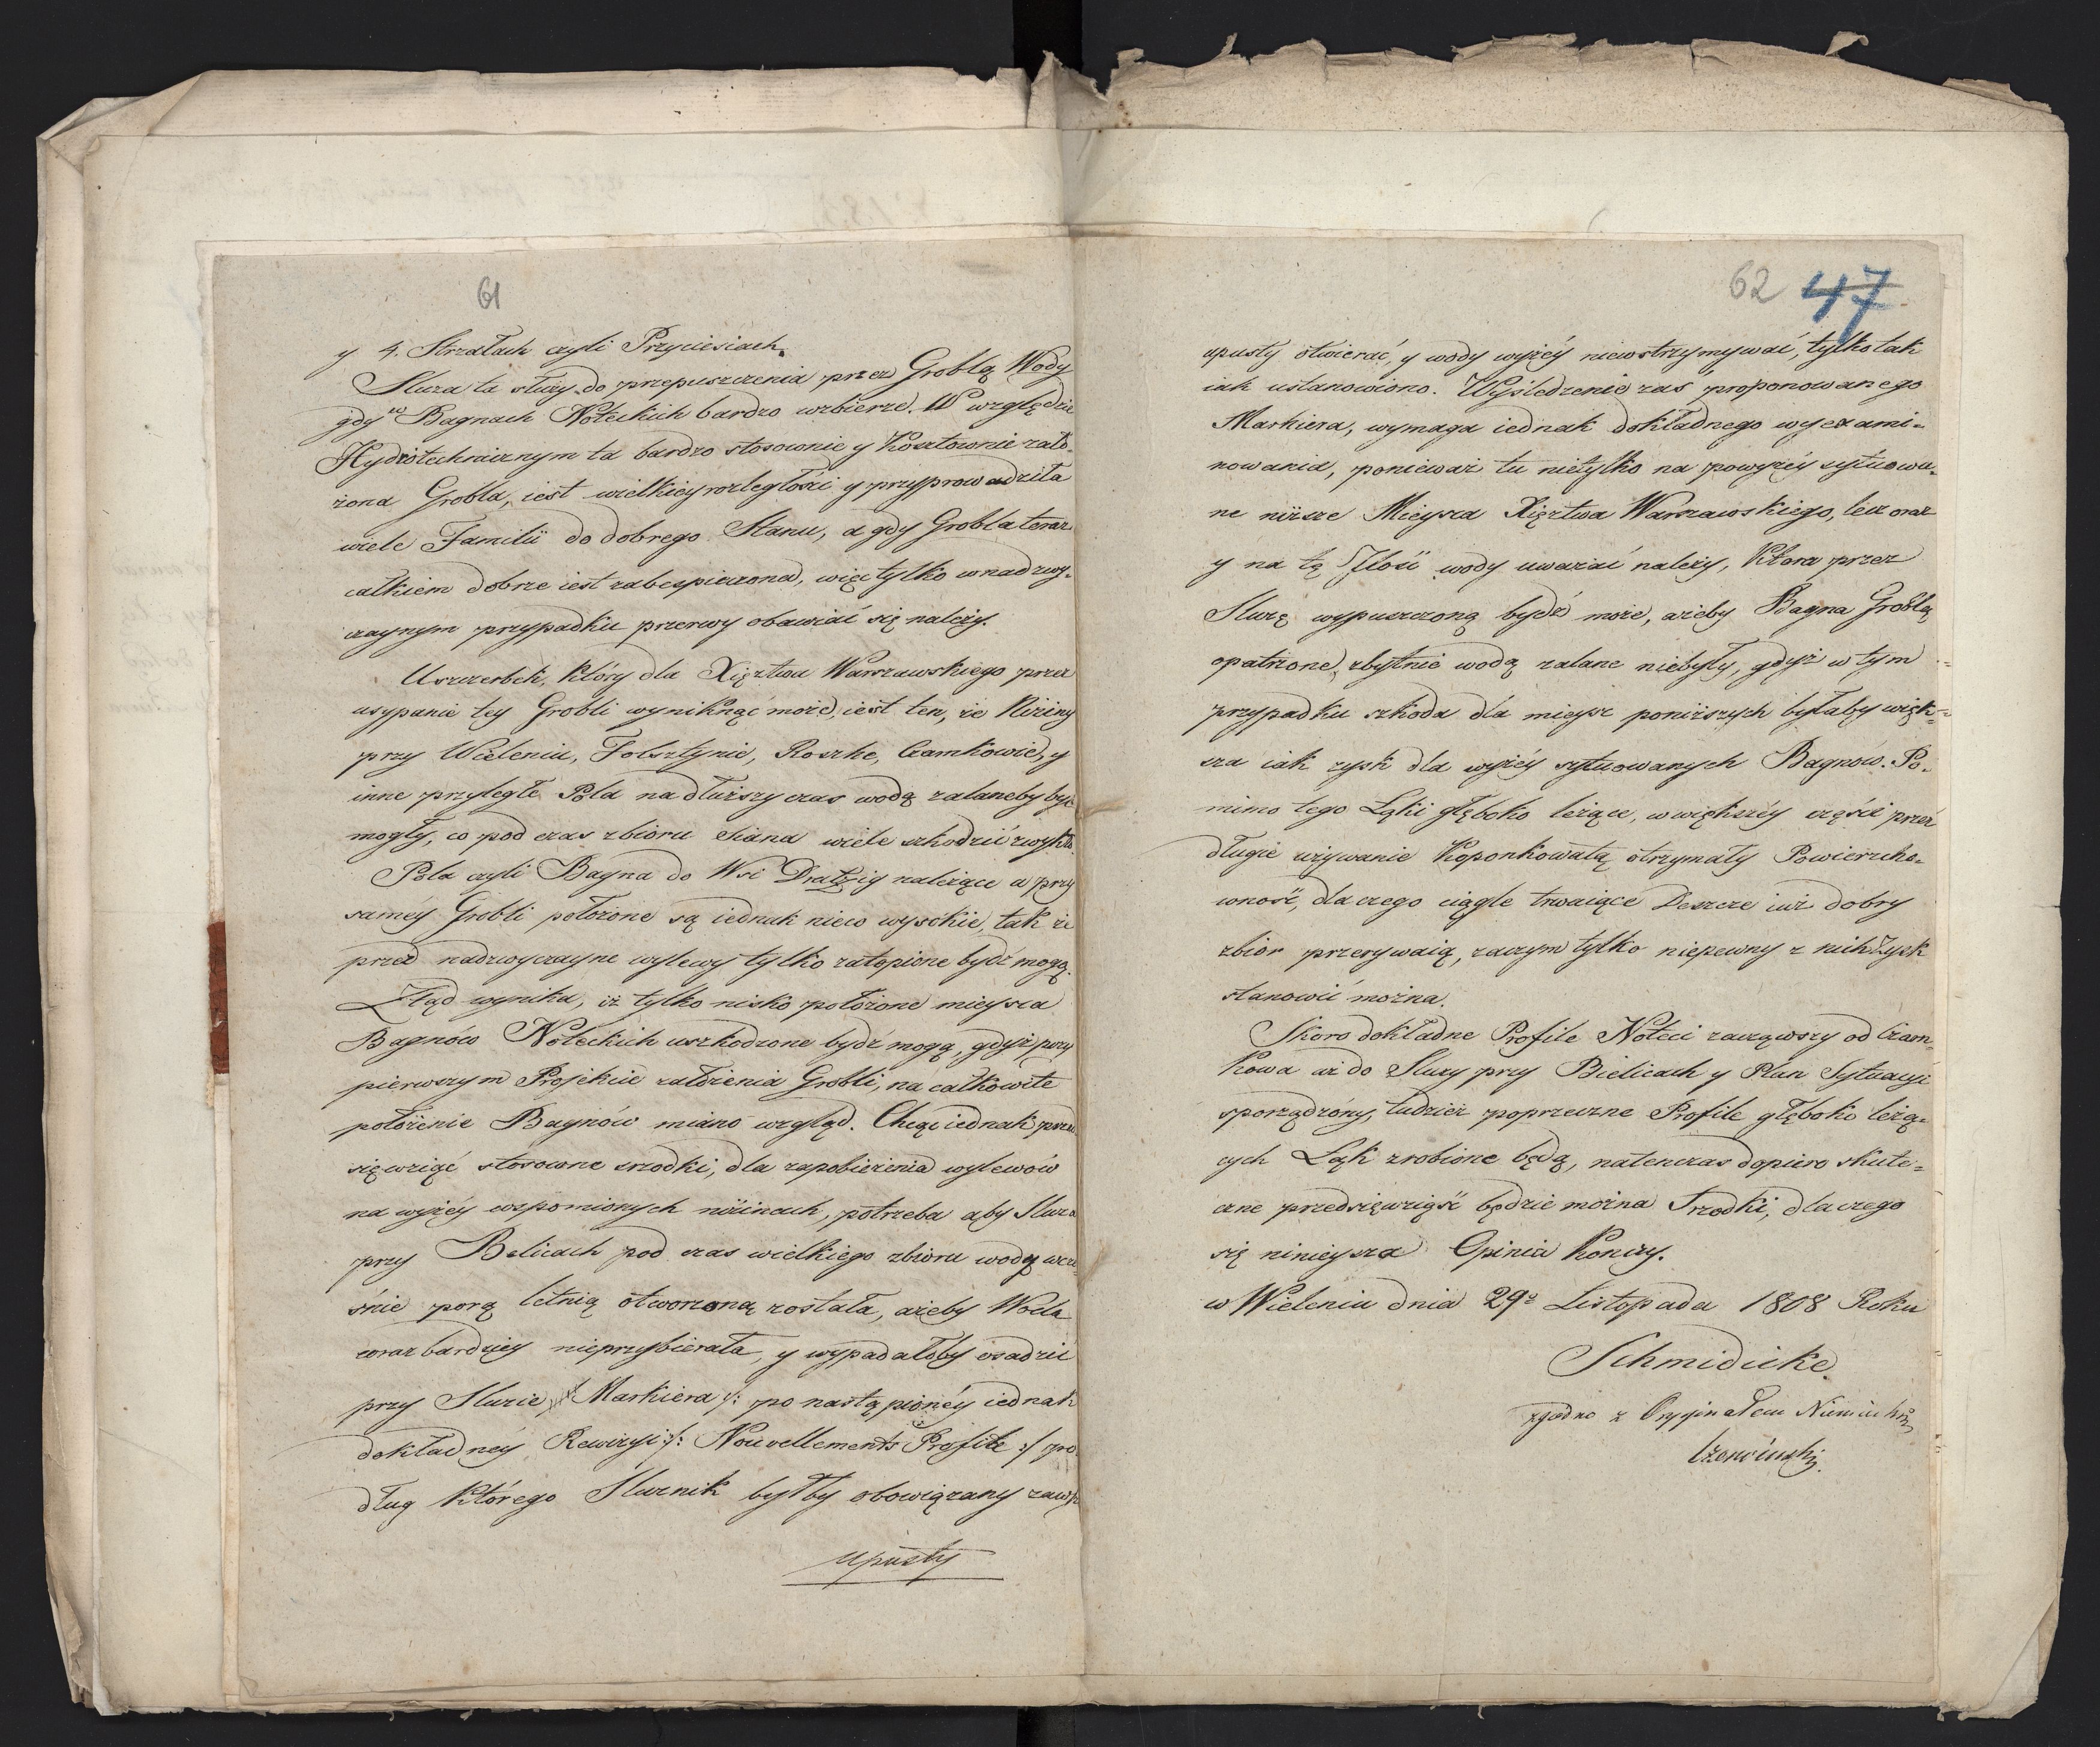 61
y 4. Strzałach czyli Przyciesiach.
Sluza ta służy do przepuszczenia przez Groblą Wody
gdy w Bagnach Noteckich bardzo wzbierze. W względzie
Hydrotechnicznym ta bardzo stosownie y kosztownie zało-
żona Grobla, iest wielkiey rozległości y przyprowadziła
wiele Familii do dobrego Stanu, a gdy Grobla teraz
całkiem dobrze iest zabespieczona, więc tylko w nadzwy-
czaynym przypadku przerwy obawiać się należy.
Uszczerbek, który dla Xięztwa Warszawskiego przez
usypanie tey Grobli wyniknąć może, iest ten, że Niziny
przy Wieleniu, Folsztynie, Roszke, Czarnkowie, y
inne przyległe Pola na dłuższy czas wodą zalaneby być
mogły, co pod czas zbioru Siana wiele szkodzić zwykło.
Pola czyli Bagna do Wsi Dratzig należące a przy
saméy Grobli położone są iednak nieco wysokie, tak że
przez nadzwyczayne wylewy tylko zatopione bydź mogą.
Ztąd wynika, iż tylko nisko położone mieysca
Bagnów Noteckich uszkodzone bydź mogą, gdyż przy
pierwszym Projekcie założenia Grobli, na całkowite
położenie Bagnów miano wzgląd. Chcąc iednak przed
się wziąć stosowne srzodki, dla zapobieżenia wylewów
na wyżéy wspomionych niżinach, potrzeba aby Sluza
przy Belicach pod czas wielkiego zbioru wody wcze-
śnie porą letnią otworzoną została, ażeby Woda
coraz bardziey nieprzybierała, y wypadałoby osadzić
przy Sluzie Markiera /: po nastąpionéy iednak
dokładnéy Rewizyi /: Nouvellements Profile :/ po
dług którego Sluznik byłby obowiązany zawsze
upusty
62 47
upusty otwierać, y wody wyżéy niewstrzymywać, tylko tak
iak ustanowiono. Wyśledzenie zas proponowanego
Markiera, wymaga iednak dokładnego wyexami-
nowania, ponieważ tu nietylko na powyżéy sytuowa-
ne niższe Mieysca Xięztwa Warszawskiego, lecz oraz
y na tą Ilość wody uważać należy, która przez
Sluzę wypuszczoną bydź może, ażeby Bagna Groblą
opatrzone, zbytnie wodą zalane niebyły, gdyż w tym
przypadku szkoda dla mieysc poniższych byłaby więk-
sza iak zysk dla wyżéy sytuowanych Bagnów. Po-
mimo tego Łąki głęboko leżące, w większéy części przez
długie używanie Koponkowatą otrzymały Powierzcho-
wność, dla czego ciągle trwaiące Deszcze iuż dobry
zbior przerywaią, zaczym tylko niepewny z nich Zysk
stanowić można.
Skoro dokładne Profile Noteci zacząwszy od Czarn-
kowa aż do Sluzy przy Bielicach y Plan Sytuacyi
sporządzóny, tudzież poprzeczne Profile głęboko leżą-
cych Łąk zrobione będą, natenczas dopiero skute-
czne przedsięwziąść będzie można Srzodki, dla czego
się ninieysza Opinia kończy.
w Wieleniu dnia 29º Listopada 1808 Roku
Schmidicke
zgodno z Oryginałem Niemieckim
Czerwiński